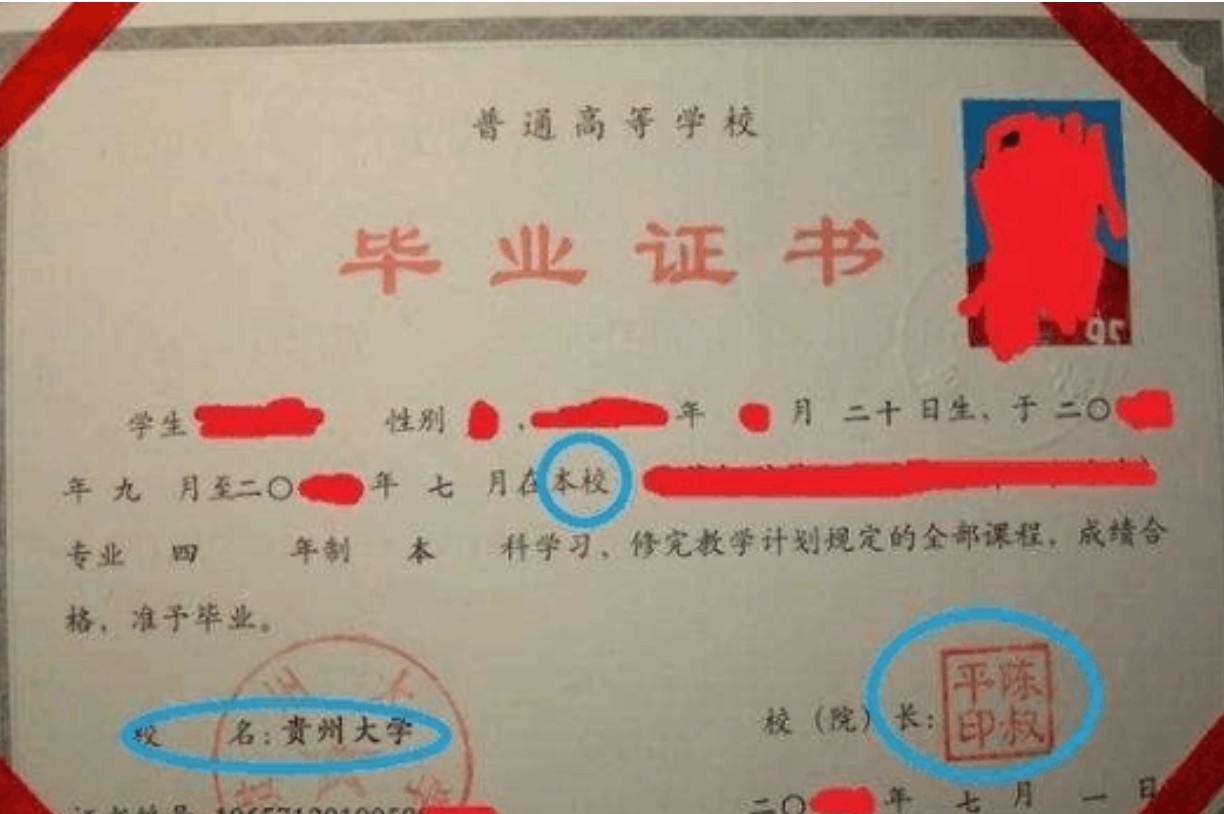 普通高等学校
毕业证书
学生 性别 , 年 月 二十 日生、于 二〇
年 九 月至二〇 年 七 月在本校
专业 四 年制 本 科学习、修完教学计划规定的全部课程，成绩合
格，准予毕业。
校 名：贵州大学
校（院）长：
陈叔平印
证书编号
二〇 年 七 月 一 日